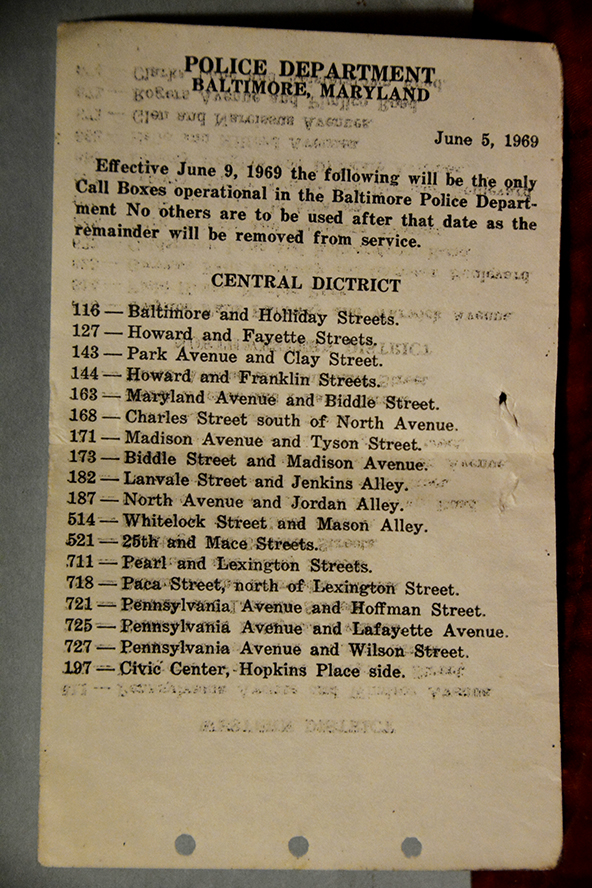 POLICE DEPARTMENT
BALTIMORE, MARYLAND
June 5, 1969
Effective June 9, 1969 the following will be the only
Call Boxes operational in the Baltimore Police Depart-
ment No others are to be used after that date as the
remainder will be removed from service.
CENTRAL DICTRICT
116 — Baltimore and Holliday Streets.
127 — Howard and Fayette Streets.
143 — Park Avenue and Clay Street.
144 — Howard and Franklin Streets.
163 — Maryland Avenue and Biddle Street.
168 — Charles Street south of North Avenue.
171 — Madison Avenue and Tyson Street.
173 — Biddle Street and Madison Avenue.
182 — Lanvale Street and Jenkins Alley.
187 — North Avenue and Jordan Alley.
514 — Whitelock Street and Mason Alley.
521 — 25th and Mace Streets.
711 — Pearl and Lexington Streets.
718 — Paca Street, north of Lexington Street.
721 — Pennsylvania Avenue and Hoffman Street.
725 — Pennsylvania Avenue and Lafayette Avenue.
727 — Pennsylvania Avenue and Wilson Street.
197 — Civic Center, Hopkins Place side.